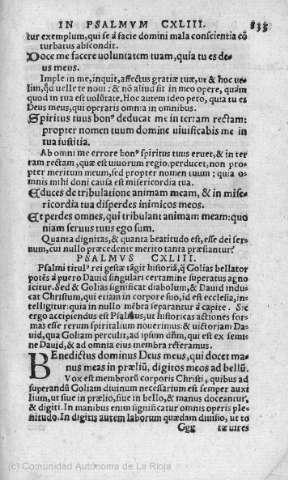 IN PSALMVM CXLIII. 833
tur exemplum, qui se á facie domini mala conscientia cõ
turbatus abscondit.
Doce me facere voluntatem tuam, quia tu es de-
us meus.
Imple in me, inquit, affectus gratiæ tuæ, ut & hoc ue-
lim, qđ uelle te noui: & nõ aliud sit in meo opere, quàm
quod in tua est uolũtate. Hoc autem ideo peto, quia tu es
Deus meus, qui operaris omnia in omnibus.
Spiritus tuus bonᵘ deducat me in terram rectam:
propter nomen tuum domine uiuificabis me in
tua iustitia.
Ab omni me errore bonᵘ spiritus tuus eruet, & in ter
ram rectam, quæ est uiuorum regio perducet, non pro-
pter meritum meum, sed propter nomen tuum: quia o-
mnis mihi doni causa est misericordia tua.
Educes de tribulatione animam meam, & in mise-
ricordia tua disperdes inimicos meos.
Et perdes omnes, qui tribulant animam meam: quo
niam seruus tuus ego sum.
Quanta dignitas, & quanta beatitudo est, esse dei ser-
num, cui nullo præcedente merito tanta præstantur?
PSALMVS CXLIII.
Psalmi titulᵘ rei gestæ tãgit historiã, q̃ Golias bellator
potẽs à puero Dauid singulari certamine superatus agno
scitur. Sed & Golias significat diabolum, & Dauid indu-
cat Christum, qui etiam in corpore suo, id est ecclesia, in-
telligitur: quia in nullo mẽbra separantur á capite. Sic
ergo accipiendus est Psalmus, ut historicas actiones for-
mas esse rerum spiritalium nouerimus: & uictoriam Da-
uid, qua Goliam percussit, ad ipsum dñm, qui est ex semi-
ne Dauid, & ad omnia eius membra referamus.
Benedictus dominus Deus meus, qui docet ma-
nus meas in prælium, digitos meos ad bellũ.
Vox est membrorũ corporis Christi, quibus ad
superandũ Goliam diuinum necessarium est semper auxi
lium, ut siue in prælio, siue in bello, & manus doceantur,
& digiti. In manibus enim significatur omnis operis ple-
nitudo. In digitis autem laborum quædam diuisio, ut to
Ggg tæ uires
(c) Comunidad Autónoma de La Rioja